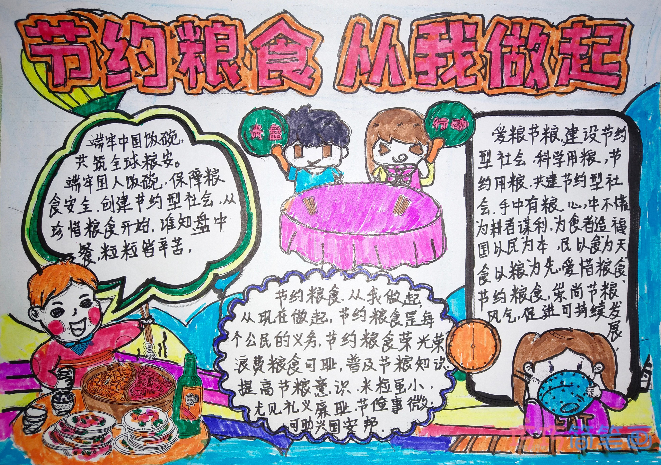 节约粮食 从我做起
光盘
行动
端牢中国饭碗,
共筑全球粮安。
端牢国人饭碗,保障粮
食安全,创建节约型社会,从
珍惜粮食开始,谁知盘中
餐,粒粒皆辛苦。
节约粮食,从我做起
从现在做起,节约粮食是每
个公民的义务,节约粮食荣光荣
浪费粮食可耻,普及节粮知识
提高节粮意识,米粒虽小,
尤见礼义廉耻,节俭事微,
可助兴国安邦
爱粮节粮,建设节约
型社会,科学用粮,节
约用粮,共建节约型社
会,手中有粮,心中不慌
为耕者谋利,为食者造福
国以民为本,民以食为天
食以粮为先,爱惜粮食
节约粮食,崇尚节粮
风气,促进可持续发
展